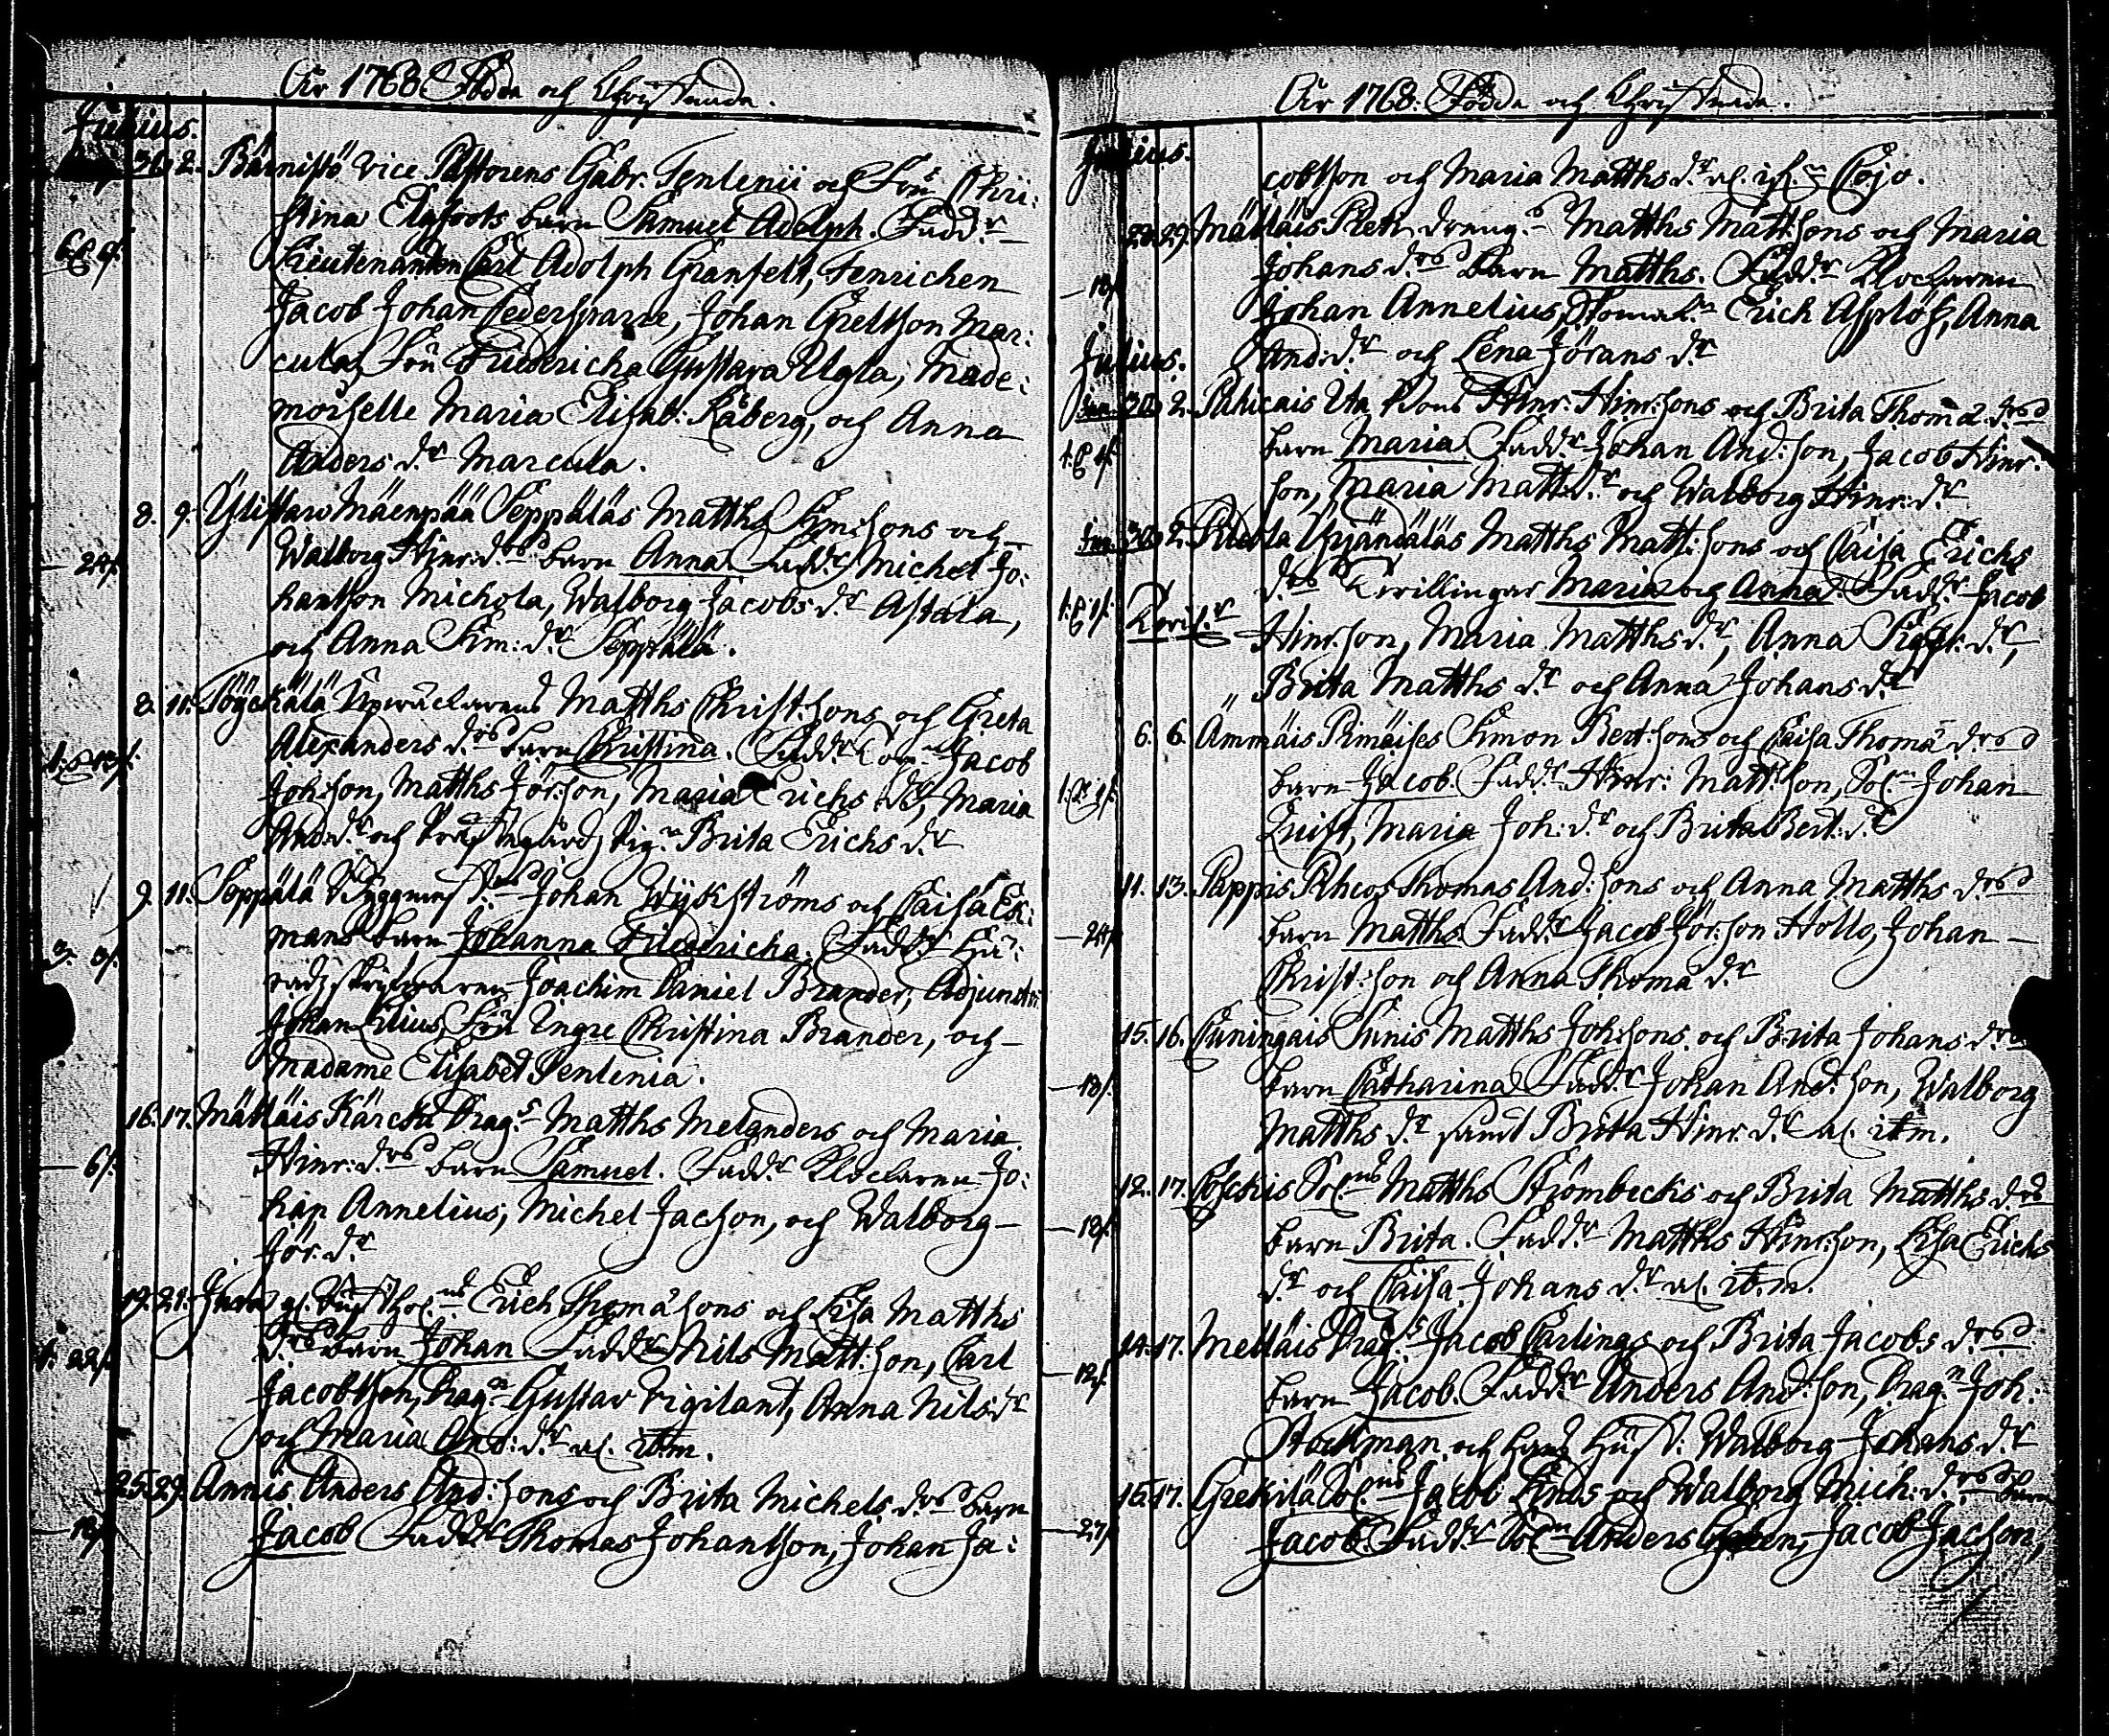 År 1768 Födde och Christnade.
Junius.
31. 2. Bärnistö Vice Pastorens Gabr. Tenlenii och Frus Chri:
stina Elgfoots barn Samuel Adolph. Fadd.r
Lieutenanten Carl Adolph Granfelt, Fenrichen
Jacob Johan Cedersparre, Johan Greltson Mar:
cula, Fru Fridericha Gustava Ugla, Made:
moiselle Maria Elisab: Råberg, och Anna
Anders d.r Marcula.
8. 9. Ylistaro Mäenpää Seppäläs Matths Sim:sons och
24/.
Walborg Hinr:d.rs barn Anna. Fadd.r Michel Jo:
hantson Michola, Walborg Jacobs d.r Astala,
och Anna Sim: d.r Seppälä.
8. 11. Matths Christ:sons och Greta
Alexanders d.rs barn Christina. Fadd.r Jacob
Joh:son, Matths Jör:son, Maria Erichs d.r, Maria
And:d.r och Prästgårds Pig.n Brita Erichs d.r
9. 11. Seppälä Johan Wykströms och Caisa Ek:
mans barn Johanna Fridericha. Fadd.r Hä:
radsskrifwaren Joachim Daniel Brander, Adjuncten
Johan Lilius, Fru Ingre Christina Brander, och
Madame Elisabet Tenlenia.
16. 17. Mättäis Kärcku Drag.s Matths Melanders och Maria
6/.
Hinr:d.rs barn Samuel. Fadd.r Klockaren Jo:
han Annelius, Michel Jacson, och Walborg
Jör.d.r
19. 21. Erich Thomæsons och Lisa Matths
d.rs barn Johan Fadd.r Nils Matt:son, Carl
Jacobtson, Drag.n Gustav Vigilant, Anna Nils d.r
och Maria And:d.r al. itm.
25. 29. Annis Anders And:sons och Brita Michels d.rs barn
Jacob Fadd.r Thomas Johantson, Johan Ja:
År 1768. Födde och Christnade.
Junius.
cobtson och Maria Matths d.r Cojo.
28. 29. Mättäis Pletz dräng.s Matths Mattsons och Maria
Johans d.rs barn Matths. Fadd.r Klockaren
Johan Annelius, Erich Asplöf, Anna
Julius.
And:d.r och Lena Jörans d.r
Jun. 30. 2. Hinr: Hinr:sons och Brita Thomæ d.rs
barn Maria Fadd.r Johan And:son, Jacob Hinr:
son, Maria Matt:d.r och Walborg Hinr:d.r
Jun. 30. 2. Matths Matt:sons och Caisa Erichs
d.rs Twillingar Maria och Anna. Fadd.r Jacob
Hinr:son, Maria Matths d.r, Anna Sigfr: d.r,
Brita Matths d.r och Anna Johans d.r
6. 6. Ämmäis Simon Bert:sons och Caisa Thomæ d.rs
barn Jacob. Fadd.r Hinr: Matt:son, Sol.n Johan
Quist, Maria Joh:d.r och Brita Bert:d.r
11. 13. Pappis Thomas And:sons och Anna Matths d.rs
24/.
barn Matths. Fadd.r Jacob Jör:son Hollo, Johan
Christ:son och Anna Thomæ d.r
15. 16. Cuningais Matths Joh:sons och Brita Johans d.rs
18/.
barn Catharina Fadd.r Johan And:son, Walborg
Matths d.r samt Brita Hinr:d.r al. itm.
12. 17. Sol.ns Matths Strömbecks och Brita Matths d.rs
18/.
barn Brita. Fadd.r Matths Hinr:son, Lisa Erichs
d.r och Caisa Johans d.r al. itm.
14. 17. Mettäis Drag.s Jacob Carlings och Brita Jacobs d.rs
12/.
barn Jacob. Fadd.r Anders And:son, Drag.n Joh:
Stockman och hans hust: Walborg Johans d.r
15. 17. Gretkilä Sol.ns Jacob Linds och Walborg Mich:d.rs barn
27/.
Jacob. Fadd.r Sol.n Anders Jacob Jacson,